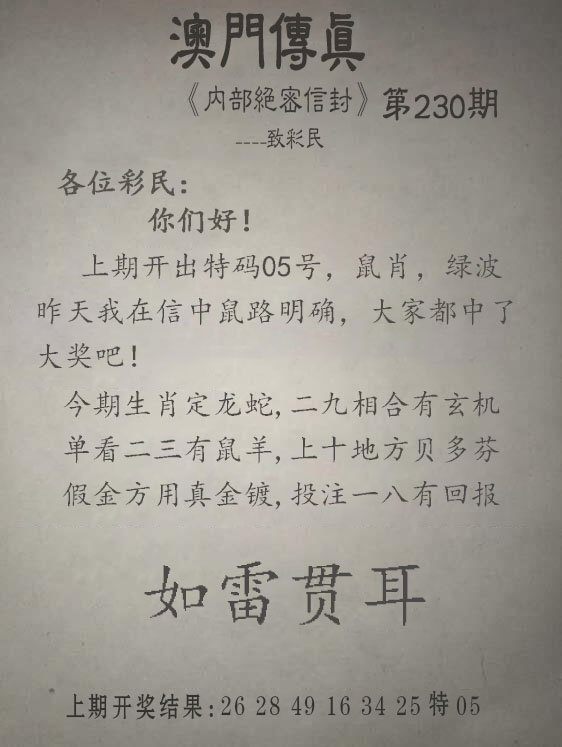 澳門傳真
《内部絕密信封》第230期
----致彩民
各位彩民:
你们好!
上期开出特码05号，鼠肖，绿波
昨天我在信中鼠路明确，大家都中了
大奖吧!
今期生肖定龙蛇,二九相合有玄机
单看二三有鼠羊,上十地方贝多芬
假金方用真金镀,投注一八有回报
如雷贯耳
上期开奖结果:26 28 49 16 34 25 特 05